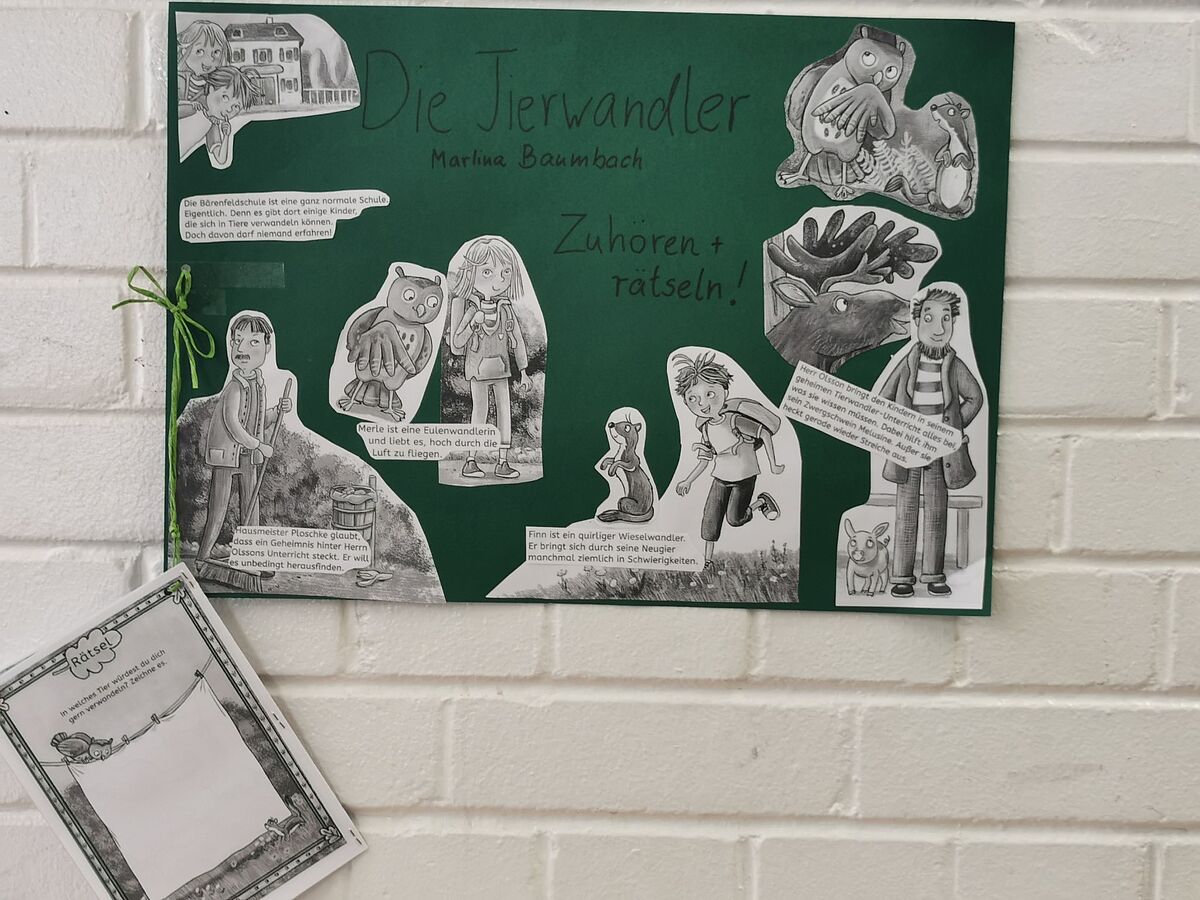 Die Tierwandler
Martina Baumbach
Zuhören +
rätseln!
Die Bärenfeldschule ist eine ganz normale Schule.
Eigentlich. Denn es gibt dort einige Kinder,
die sich in Tiere verwandeln können.
Doch davon darf niemand erfahren!
Merle ist eine Eulenwandlerin
und liebt es, hoch durch die
Luft zu fliegen.
Herr Olsson bringt den Kindern in seinem
geheimen Tierwandler-Unterricht alles bei,
was sie wissen müssen. Dabei hilft ihm
sein Zwergschwein Melusine. Außer sie
heckt gerade wieder Streiche aus.
Hausmeister Ploschke glaubt,
dass ein Geheimnis hinter Herrn
Olssons Unterricht steckt. Er will
es unbedingt herausfinden.
Finn ist ein quirliger Wieselwandler.
Er bringt sich durch seine Neugier
manchmal ziemlich in Schwierigkeiten.
Rätsel
In welches Tier würdest du dich
gern verwandeln? Zeichne es.